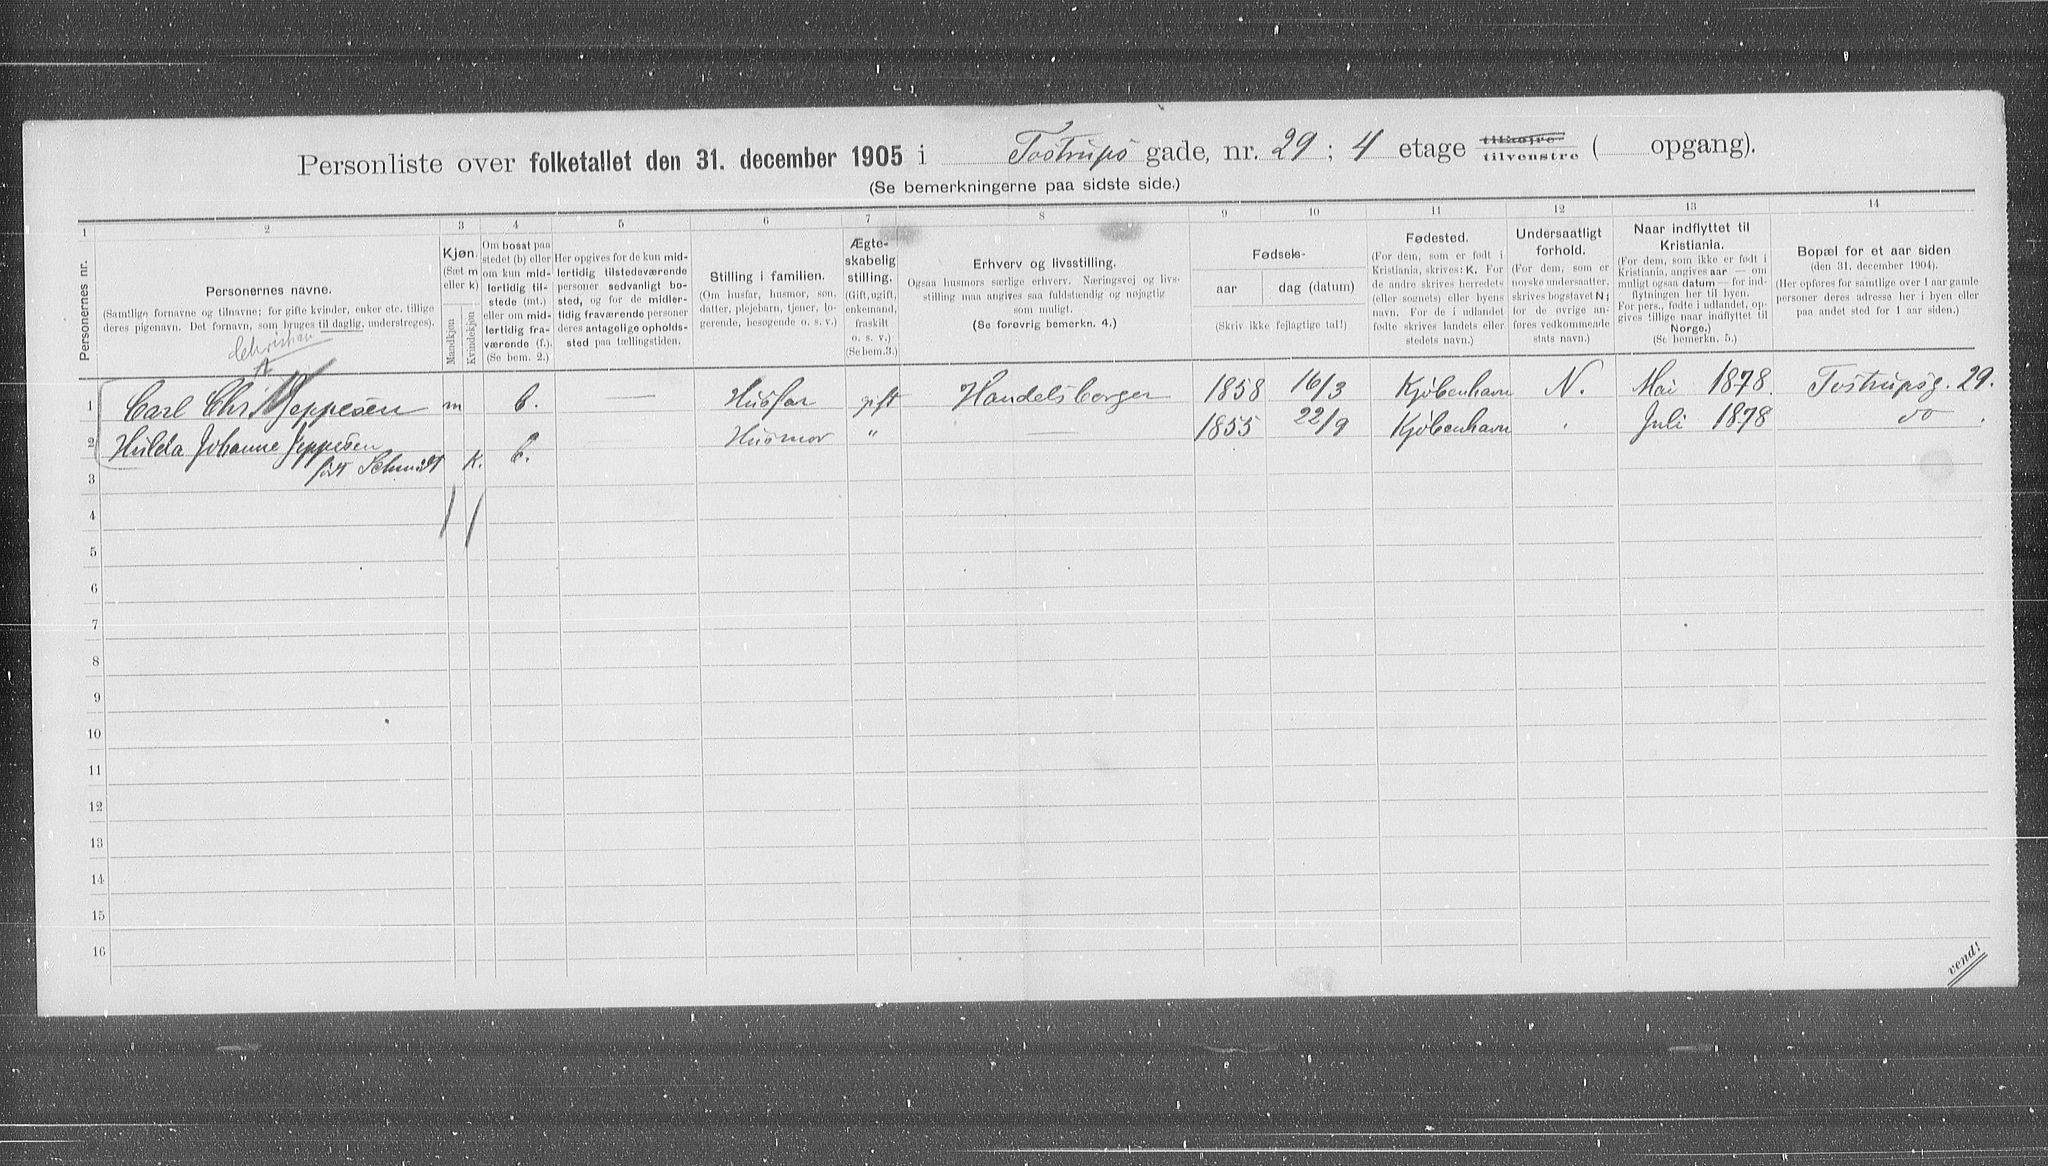 Personliste over folketallet den 31. december 1905 i Tostrups gade, nr. 29 ; 4 etage tilhøire tilvenstre ( opgang).
(Se bemerkningerne paa sidste side.)
1 2 3 4 5 6 7 8 9 10 11 12 13 14
Personernes nr.
Personernes navne.
(Samtlige fornavne og tilnavne; for gifte kvinder, enker etc. tillige
deres pigenavn. Det fornavn, som bruges til daglig, understreges).
Kjøn.
(Sæt m
eller k)
Mandkjøn
Kvindekjøn
Om bosat paa
stedet (b) eller
om kun mid-
lertidig til-
stede (mt.)
eller om mid-
lertidig fra-
værende (f.).
(Se bem. 2.)
Her opgives for de kun mid-
lertidig tilstedeværende
personer sedvanligt bo-
sted, og for de midler-
tidig fraværende personer
deres antagelige opholds-
sted paa tællingstiden.
Stilling i familien.
(Om husfar, husmor, søn,
datter, plejebarn, tjener, lo-
gerende, besøgende o. s. v.)
Ægte-
skabelig
stilling.
(Gift, ugift,
enkemand,
fraskilt
o. s. v.)
(Se bem. 3.)
Erhverv og livsstilling.
Ogsaa husmors særlige erhverv. Næringsvej og livs-
stilling maa angives saa fuldstændig og nøjagtig
som muligt.
(Se forøvrig bemerkn. 4.)
Fødsels-
aar dag (datum)
(Skriv ikke fejlagtige tal!)
Fødested.
(For dem, som er født i
Kristiania, skrives: K. For
de andre skrives herredets
(eller sognets) eller byens
navn. For de i udlandet
fødte skrives landets eller
stedets navn.)
Undersaatligt
forhold.
(For dem, som er
norske undersaatter,
skrives bogstavet N;
for de øvrige an-
føres vedkommende
stats navn.)
Naar indflyttet til
Kristiania.
(For dem, som ikke er født i
Kristiania, angives aar — om
muligt ogsaa datum — for ind-
flytningen her til byen.
For pers., fødte i udlandet, op-
gives tillige naar indflyttet til
Norge.)
(Se bemerkn. 5.)
Bopæl for et aar siden
(den 31. december 1904).
(Her opføres for samtlige over 1 aar gamle
personer deres adresse her i byen eller
paa andet sted for 1 aar siden.)
Christian
1 Carl Chr. Jeppesen m b. — Husfar gift Handelsborger 1858 16/3 Kjøbenhavn N. Mai 1878. Tostrupsg. 29.
2 Hulda Johanne Jeppesen Husmor " — 1855 22/9 Kjøbenhavn Juli 1878 do
født Schmidt K. b.
3
4
5
6
7
8
9
10
11
12
13
14
15
16
vend!